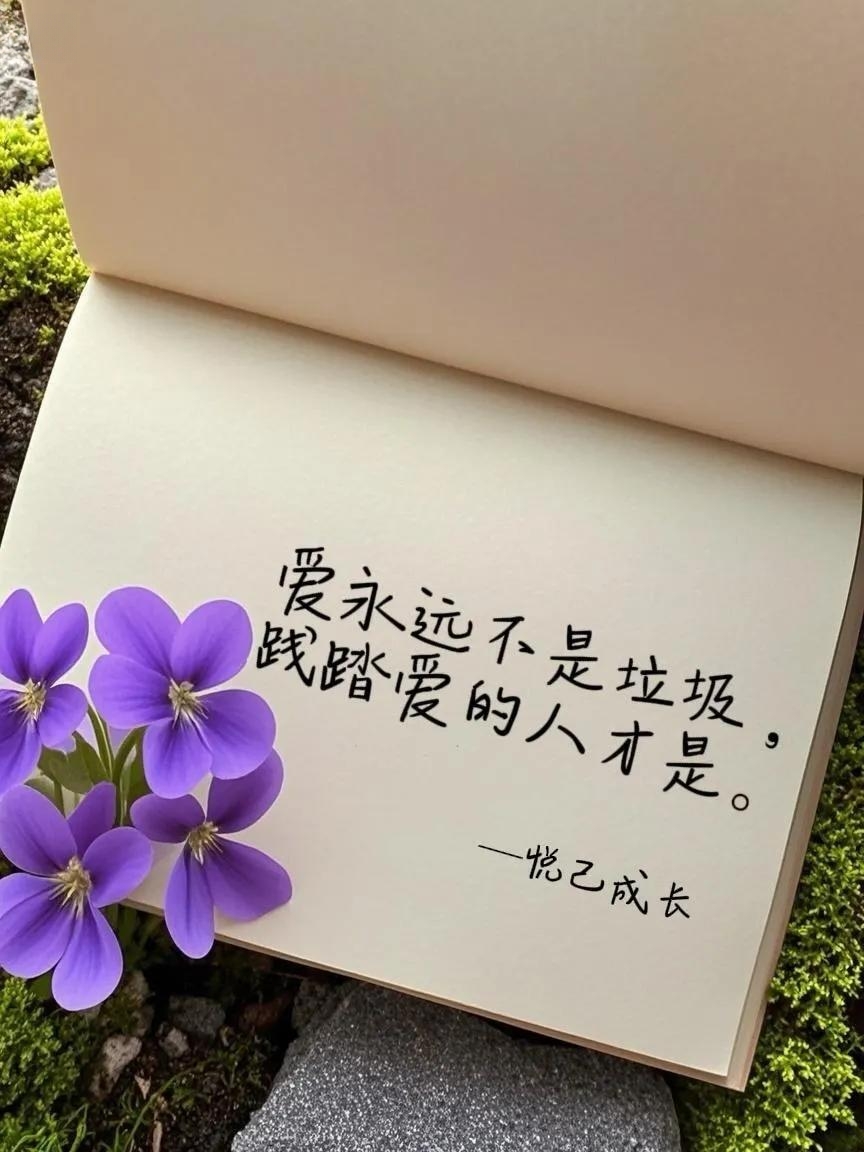 爱永远不是垃圾，
践踏爱的人才是。
—悦己成长